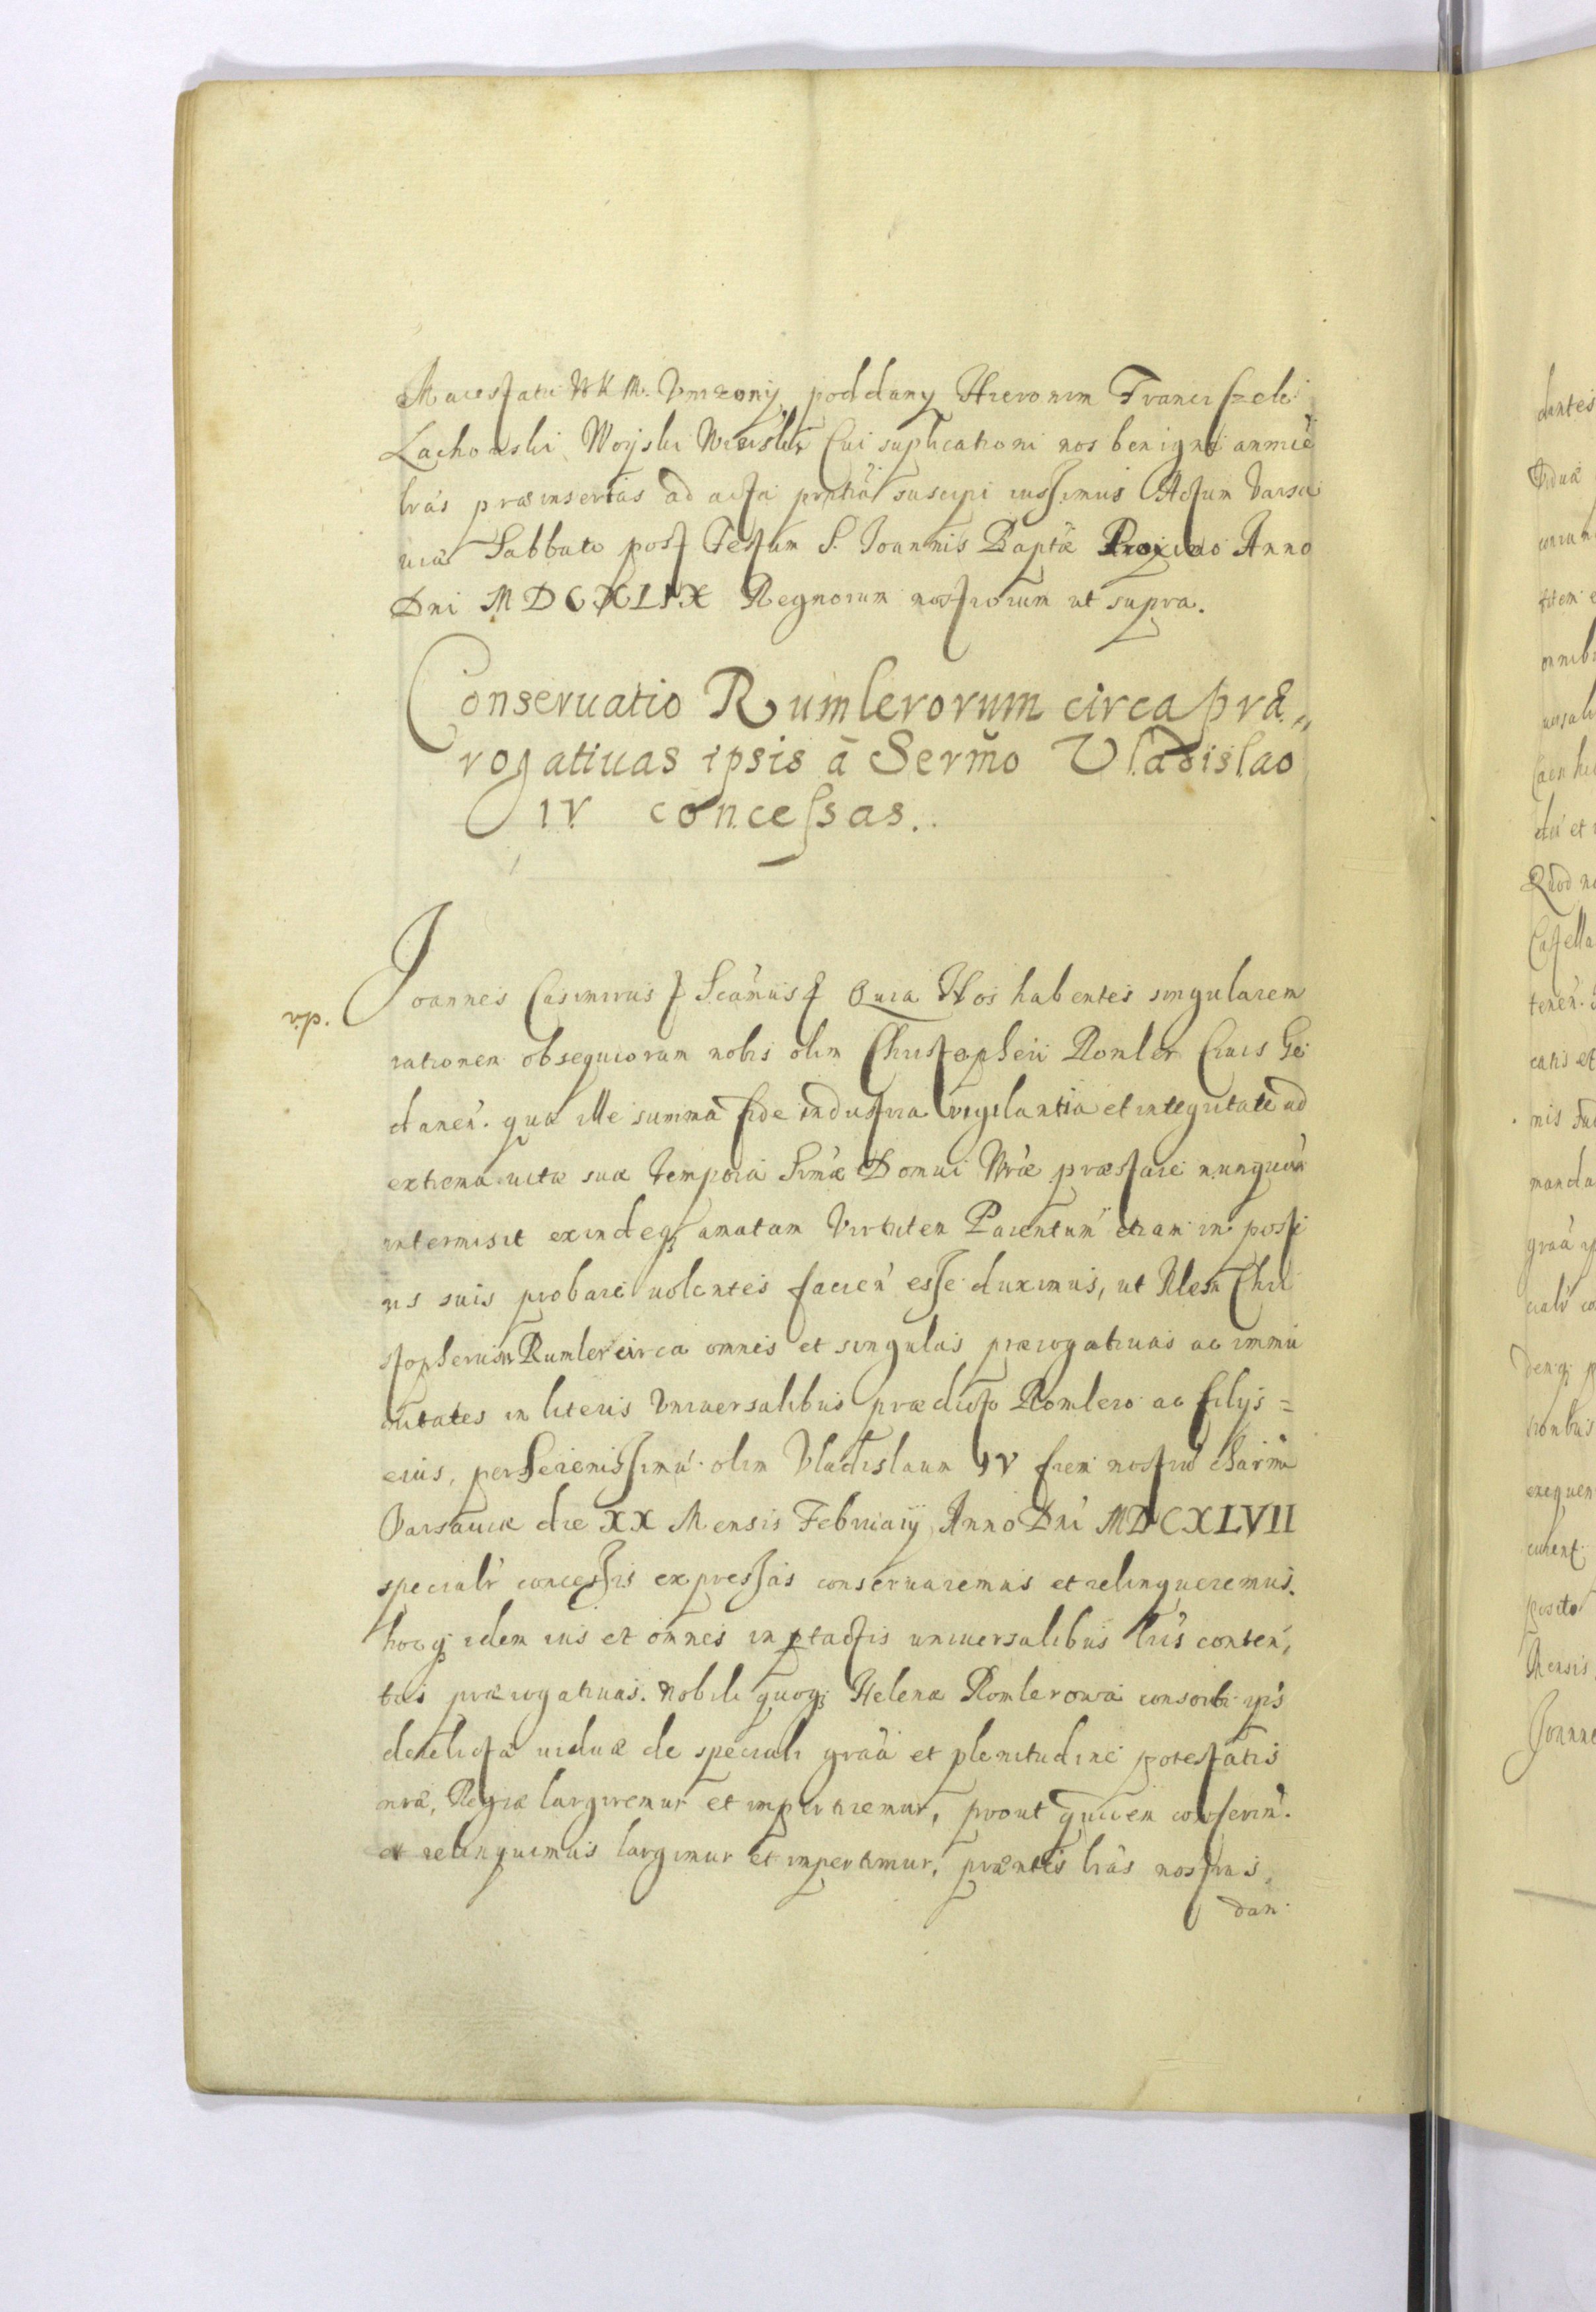 Maiestatis WKM. Vnizony poddany Hieronim Franciszek
Lachowski Woyski Wuislit Cui suplicationi nos benigne annuẽ
lras præinsertas ad acta prntia suscipi iussimus Actum Varsa
uiæ Sabbato post Festum S. Joannis Baptæ Proximo Anno
Dni MDCXLIX Regnorum nostrorum ut supra.
Conseruatio Rumlerorum circa præ„
rogatiuas ipsis ā Serm̃o Vladislao
IV concessas.
Joannes Casimirus Scamus Quia Nos habentes singularem
vip.
rationem obsequiorum nobis olim Christopheri Romler Ciuis Ge
danen. quæ ille summa fide industria vigilantia et integritate ad
extrema uitæ suæ tempora Sermæ Domui Nræ præstare nunquam
intermisit exindeq amatam Virtutem Parentum etiam in poste
ris suis probare uolentes facien esse duximus, ut Idem Chri
stopherus Rumler circa omnes et singulas prærogatiuas ac immu
nitates in literis Vniuersalibus prædicto Romlero ac filijs =
eius, per Serenissimu olim Vladislaum IV frem nostru charim
Varsauiæ die XX Mensis Februarij Anno Dni MDCXLVII
specialr concessis expressas conseruaremus et relinqueremus.
hocq idem ius et omnes in ptactis uniuersalibus lris conten,
tas prærogatiuas. Nobili quoq Helenæ Romlerowa consorti ips
derelicta uiduæ de speciali graa et plenitudine potestatis
nræ, Regiæ largiremur et impertiremur, prout quidem conseru.
et relinquimus largimur et impertimur, præntes lras nostras,
dan
dantes
viduæ
Castella
Quod no
mis
manda
graa
exequen
curent
posito
Mensis
Joanne